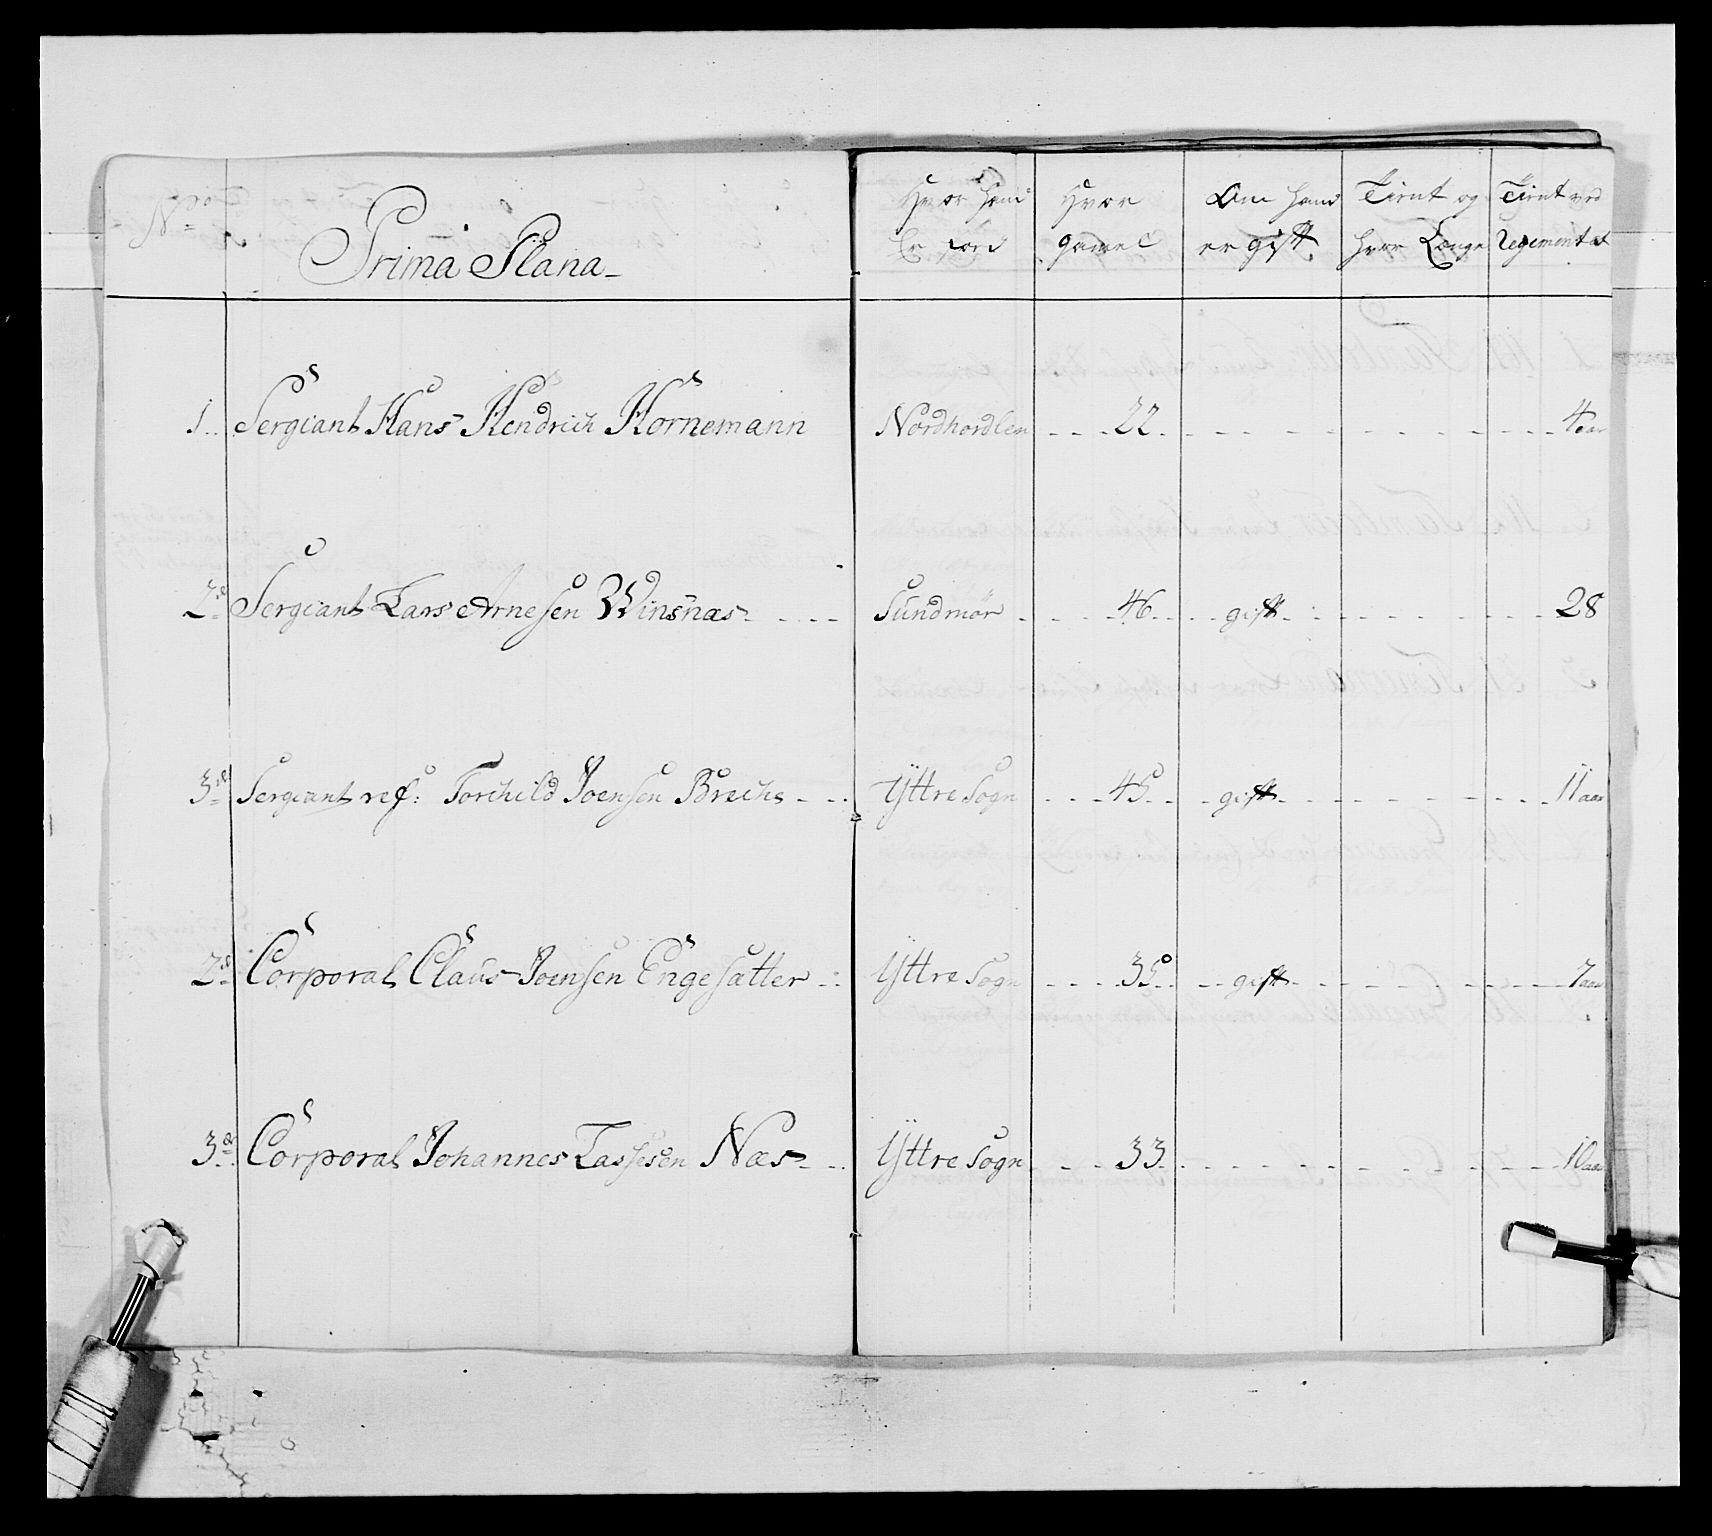 No Prima Plana Hvor hand Hvor Om hand Tient og Tient ved
Er gamel er gift hvor Længe Regementet
1 Sergiant Hans Hendrich Hornemann Nordhordlen 22 4 aar
2de Sergiant Lars Arnesen Winsnæs Sundmör 46 gift 28
3de Sergiant ref: Torchild Joensen Brechs Yttre Sogn 45 gift 11 aar
2de Corporal Claus Joensen Engesätter Yttre Sogn 35 gift 7 aar
3de Corporal Johannes Lassesen Næs Yttre Sogn 33 10 aar